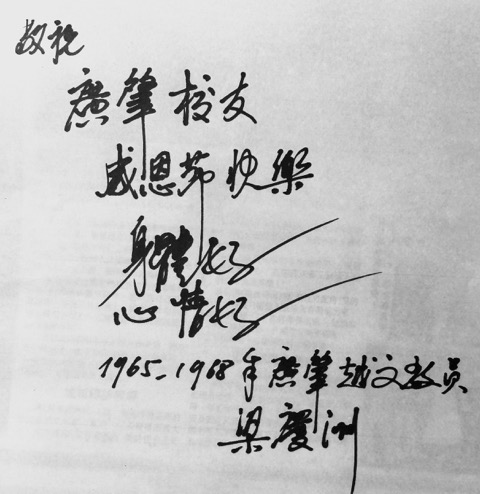 敬祝
廣肇校友
感恩节快樂
身體好
心情好
1965-1968年廣肇越文教员
梁慶洲